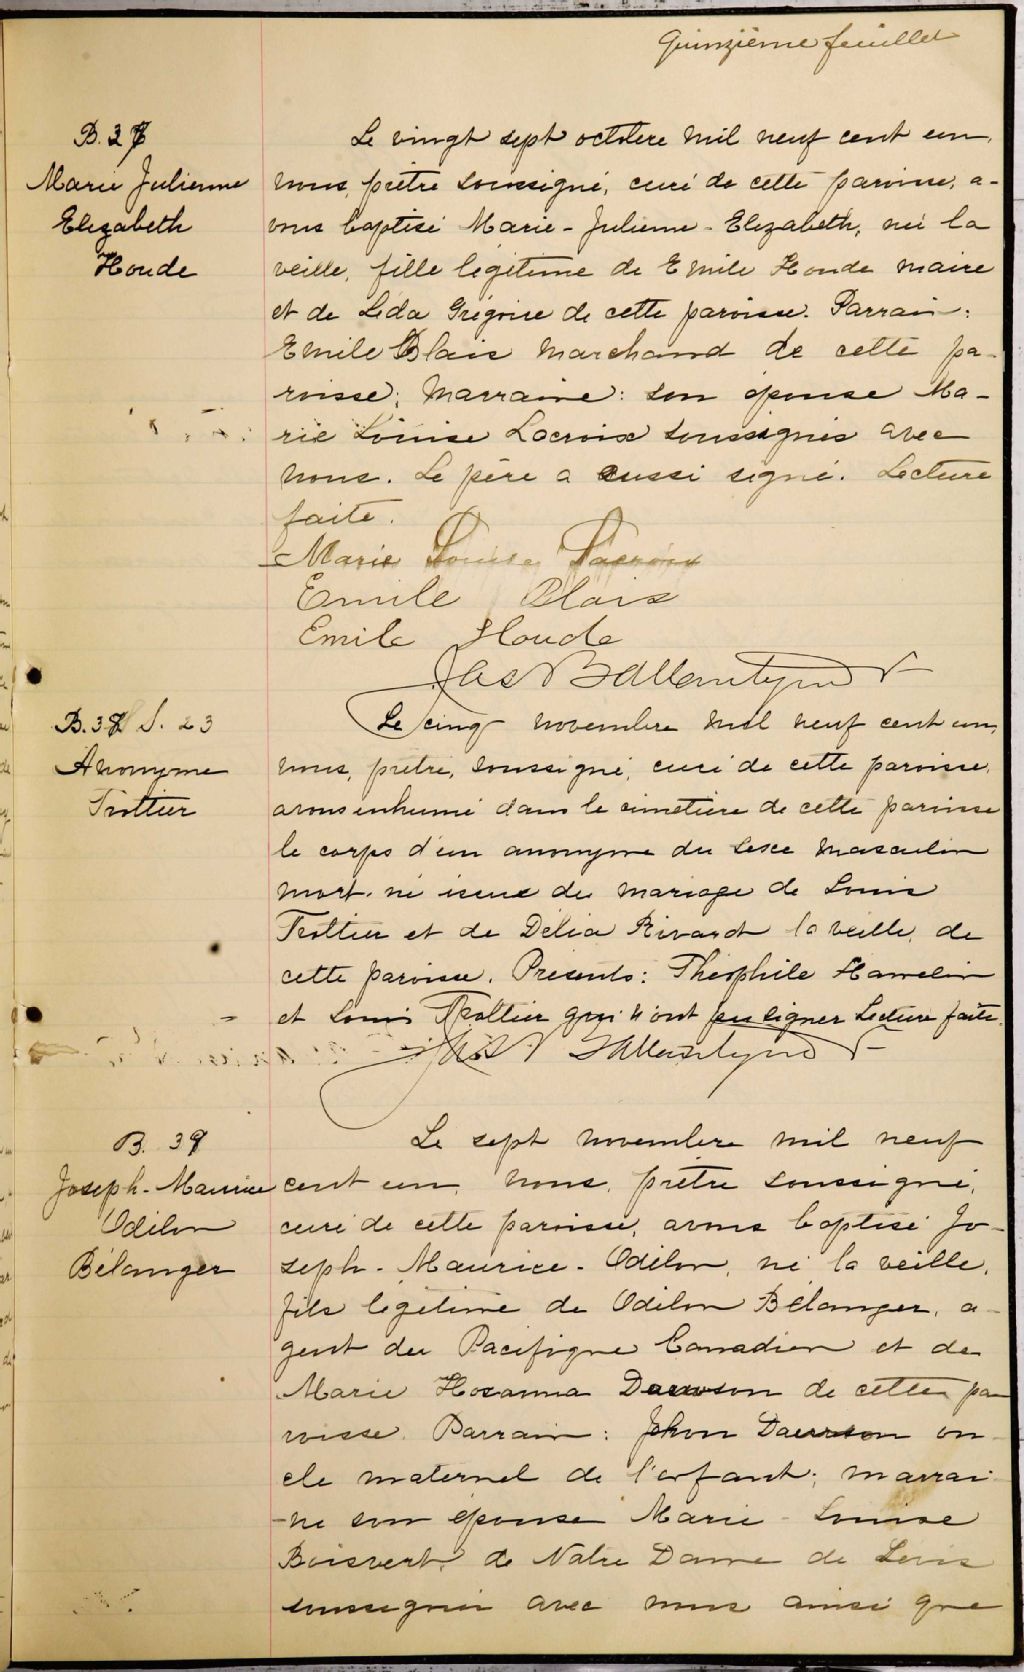 Quinzième feuillet
B. 37
Marie Julienne
Elizabeth
Houde
Le vingt sept octobre mil neuf cent un,
nous, prêtre soussigné, curé de cette paroisse, a-
vons baptisé Marie-Julienne-Elizabeth, née la
veille, fille légitime de Emile Houde maire
et de Léda Grégoire de cette paroisse. Parrain:
Emile Blais marchand de cette pa-
roisse; marraine: son épouse Ma-
rie Louise Lacroix soussignés avec
nous. Le père a aussi signé. Lecture
faite.
Marie Louise Lacroix
Emile Blais
Emile Houde
Jas Ballantyne
B. 38 S. 23
Anonyme
Trottier
Le cinq novembre mil neuf cent un,
nous, prêtre, soussigné, curé de cette paroisse,
avons inhumé dans le cimetière de cette paroisse
le corps d'un anonyme du sexe masculin
mort-né issue du mariage de Louis
Trottier et de Délia Rivard la veille, de
cette paroisse. Présents: Théophile Hamelin
et Louis Trottier qui n'ont pu signer Lecture faite.
Jas Ballantyne
B. 39
Joseph-Maurice
Odilon
Bélanger
Le sept novembre mil neuf
cent un, nous, prêtre soussigné,
curé de cette paroisse, avons baptisé Jo-
seph-Maurice-Odilon, né la veille,
fils légitime de Odilon Bélanger, a-
gent du Pacifique Canadien et de
Marie Hosanna Dawson de cette pa
roisse. Parrain: Jhon Dawson on
cle maternel de l'enfant; marrai
-ne son épouse Marie-Louise
Boisvert, de Notre Dame de Levis
soussignés avec nous ainsi que